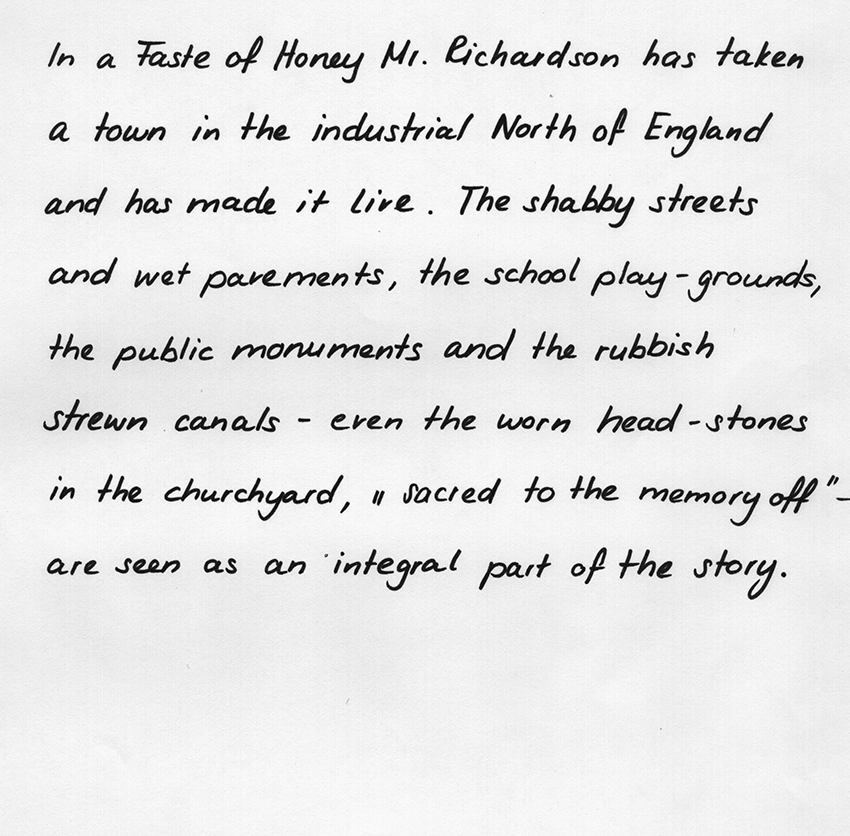 In a Taste of Honey Mr. Richardson has taken
a town in the industrial North of England
and has made it live. The shabby streets
and wet pavements, the school play-grounds,
the public monuments and the rubbish
strewn canals - even the worn head-stones
in the churchyard, "sacred to the memory off"-
are seen as an integral part of the story.